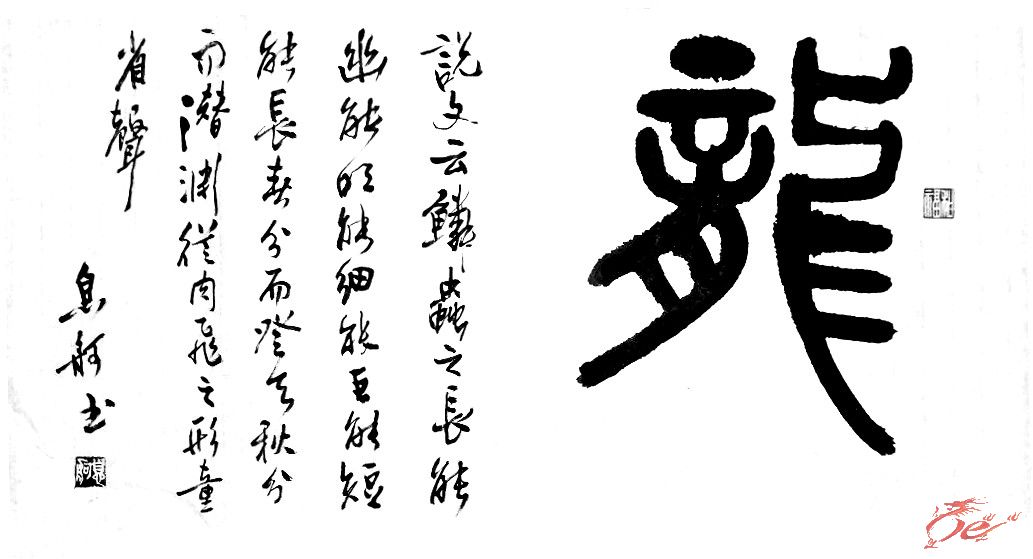 龍
說文云鱗蟲之長能
幽能明能細能巨能短
能長春分而登天秋分
而潛淵從肉飛之形童
省聲
舸书